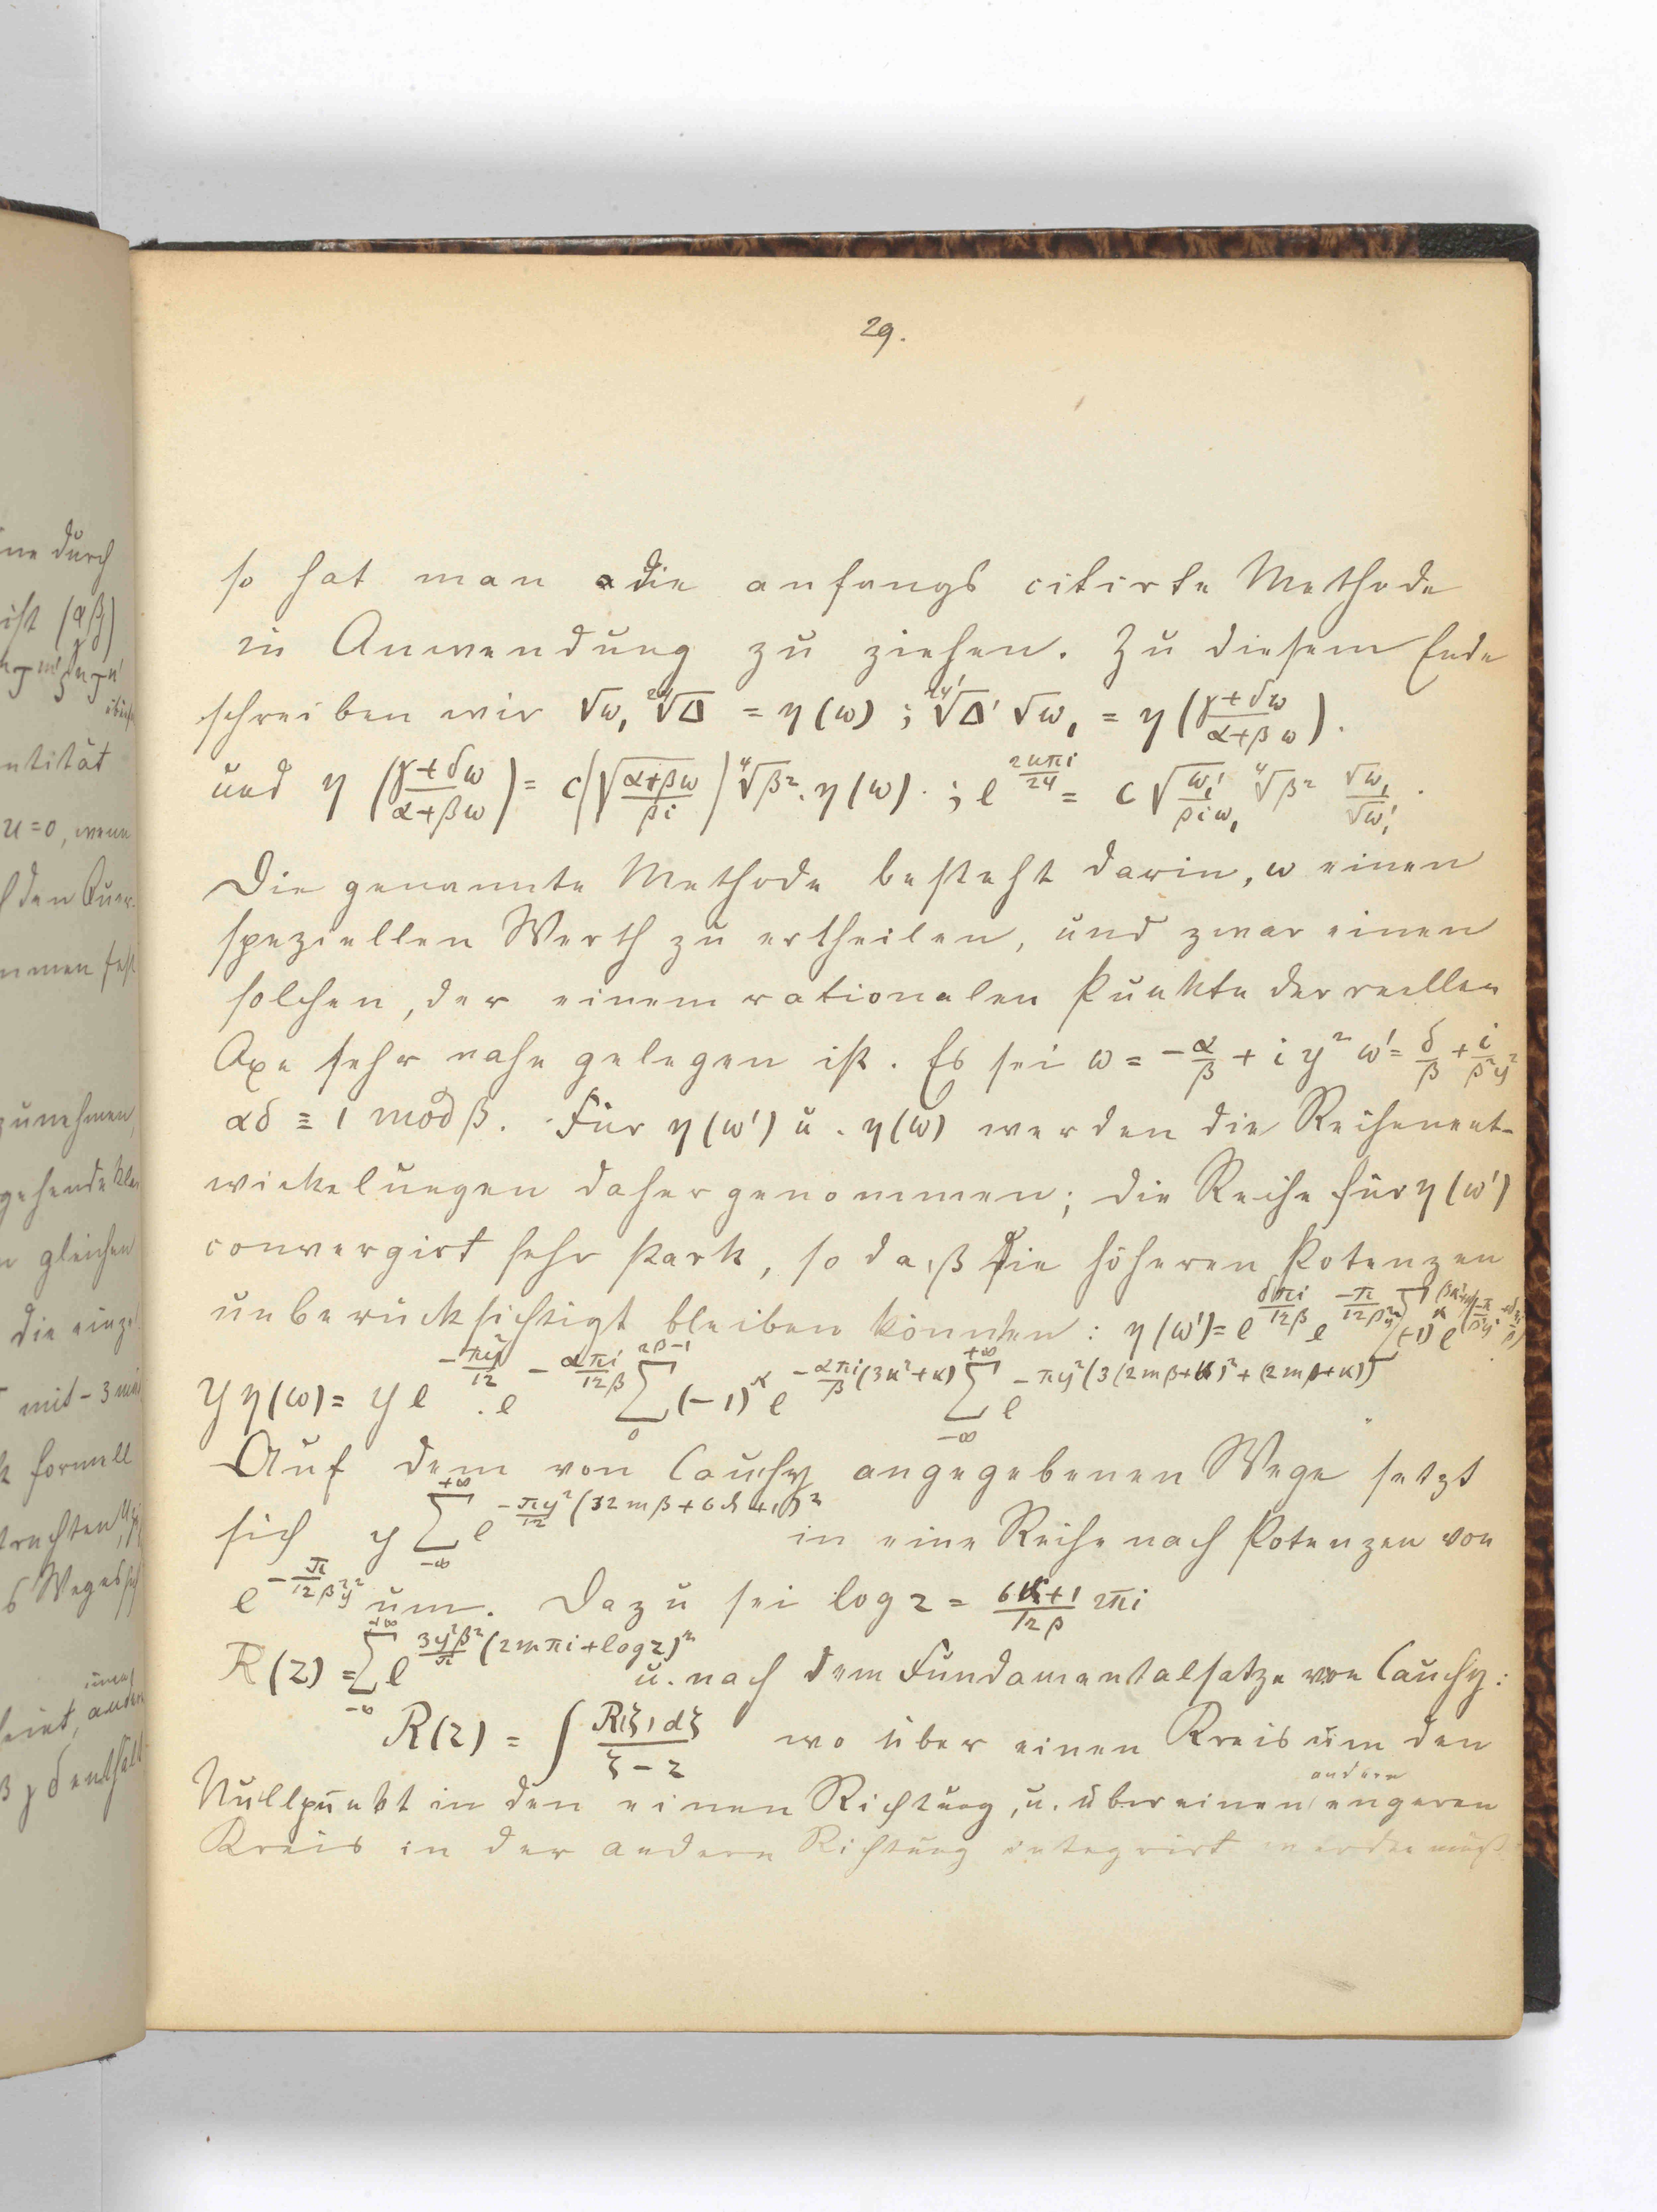 ne durch
ist (αβ)
ntität
u=0, wenn
den Quer-
mmen fest
zunehmen,
gehende
gleichen
die einz
mit -3
formell
trachten
Weges
29.
so hat man die anfangs citirte Methode
in Anwendung zu ziehen. Zu diesem Ende
schreiben wir √ω₁ ²⁴√Δ = η(ω); ²⁴√Δ' √ω₁' = η((γ+δω)/(α+βω)).
und η((γ+δω)/(α+βω)) = c(√((α+βω)/(βi))) ⁴√β². η(ω). ; e^(2uπi/24) = c √(ω₁'/(βiω₁)) ⁴√β² √ω₁/√ω₁'.
Die genannte Methode besteht darin, ω einen
speziellen Werth zu ertheilen, und zwar einen
solchen, der einem rationalen Punkte der reellen
Axe sehr nahe gelegen ist. Es sei ω = -α/β + iy² ω' = δ/β + i/(β²y²)
αδ ≡ 1 mod β. Für η(ω') u. η(ω) werden die Reihenent-
wickelungen daher genommen; die Reihe für η(ω')
convergirt sehr stark, so daß die höheren Potenzen
unberücksichtigt bleiben können: η(ω') = e^(δπi/12β) e^(-π/12β²y²) Σ(-1)^κ e
yη(ω) = y e^(-πy²/12) . e^(-απi/12β) Σ_0^(2β-1) (-1)^κ e^(-(απi/β)(3κ²+κ)) Σ_(-∞)^(+∞) e^(-πy²(3(2mβ+κ)²+(2mβ+κ)))
Auf dem von Cauchy angegebenen Wege setzt
sich y Σ_(-∞)^(+∞) e^(-(πy²/12)(12mβ+6κ+1)²) in eine Reihe nach Potenzen von
e^(-π/12β²y²) um. Dazu sei log z = (6κ+1)/(12β) 2πi
R(z) = Σ_(-∞)^(+∞) e^((3y²β²/π)(2mπi+log z)²) u. nach dem Fundamentalsatze von Cauchy:
R(z) = ∫ R(ζ)dζ/(ζ-z) wo über einen Kreis um den
Nullpunkt in den einen Richtung, u. über einen andern engeren
Kreis in der andern Richtung integrirt werden muß